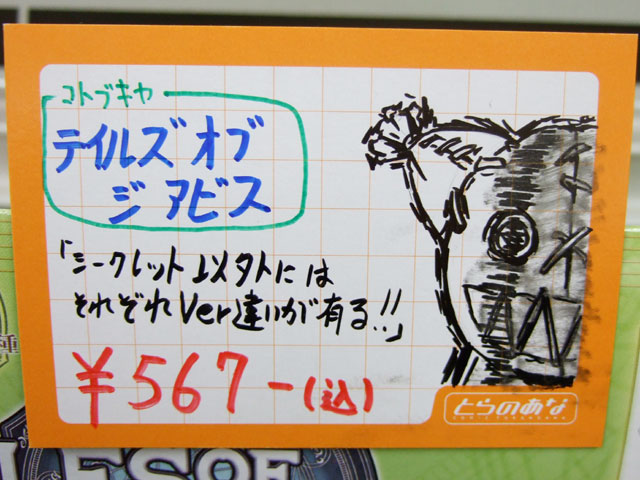 コトブキヤ
テイルズ オブ
ジ アビス
「シークレット以外には
それぞれVer違いが有る!!」
¥567-(込)
とらのあな
ES OF